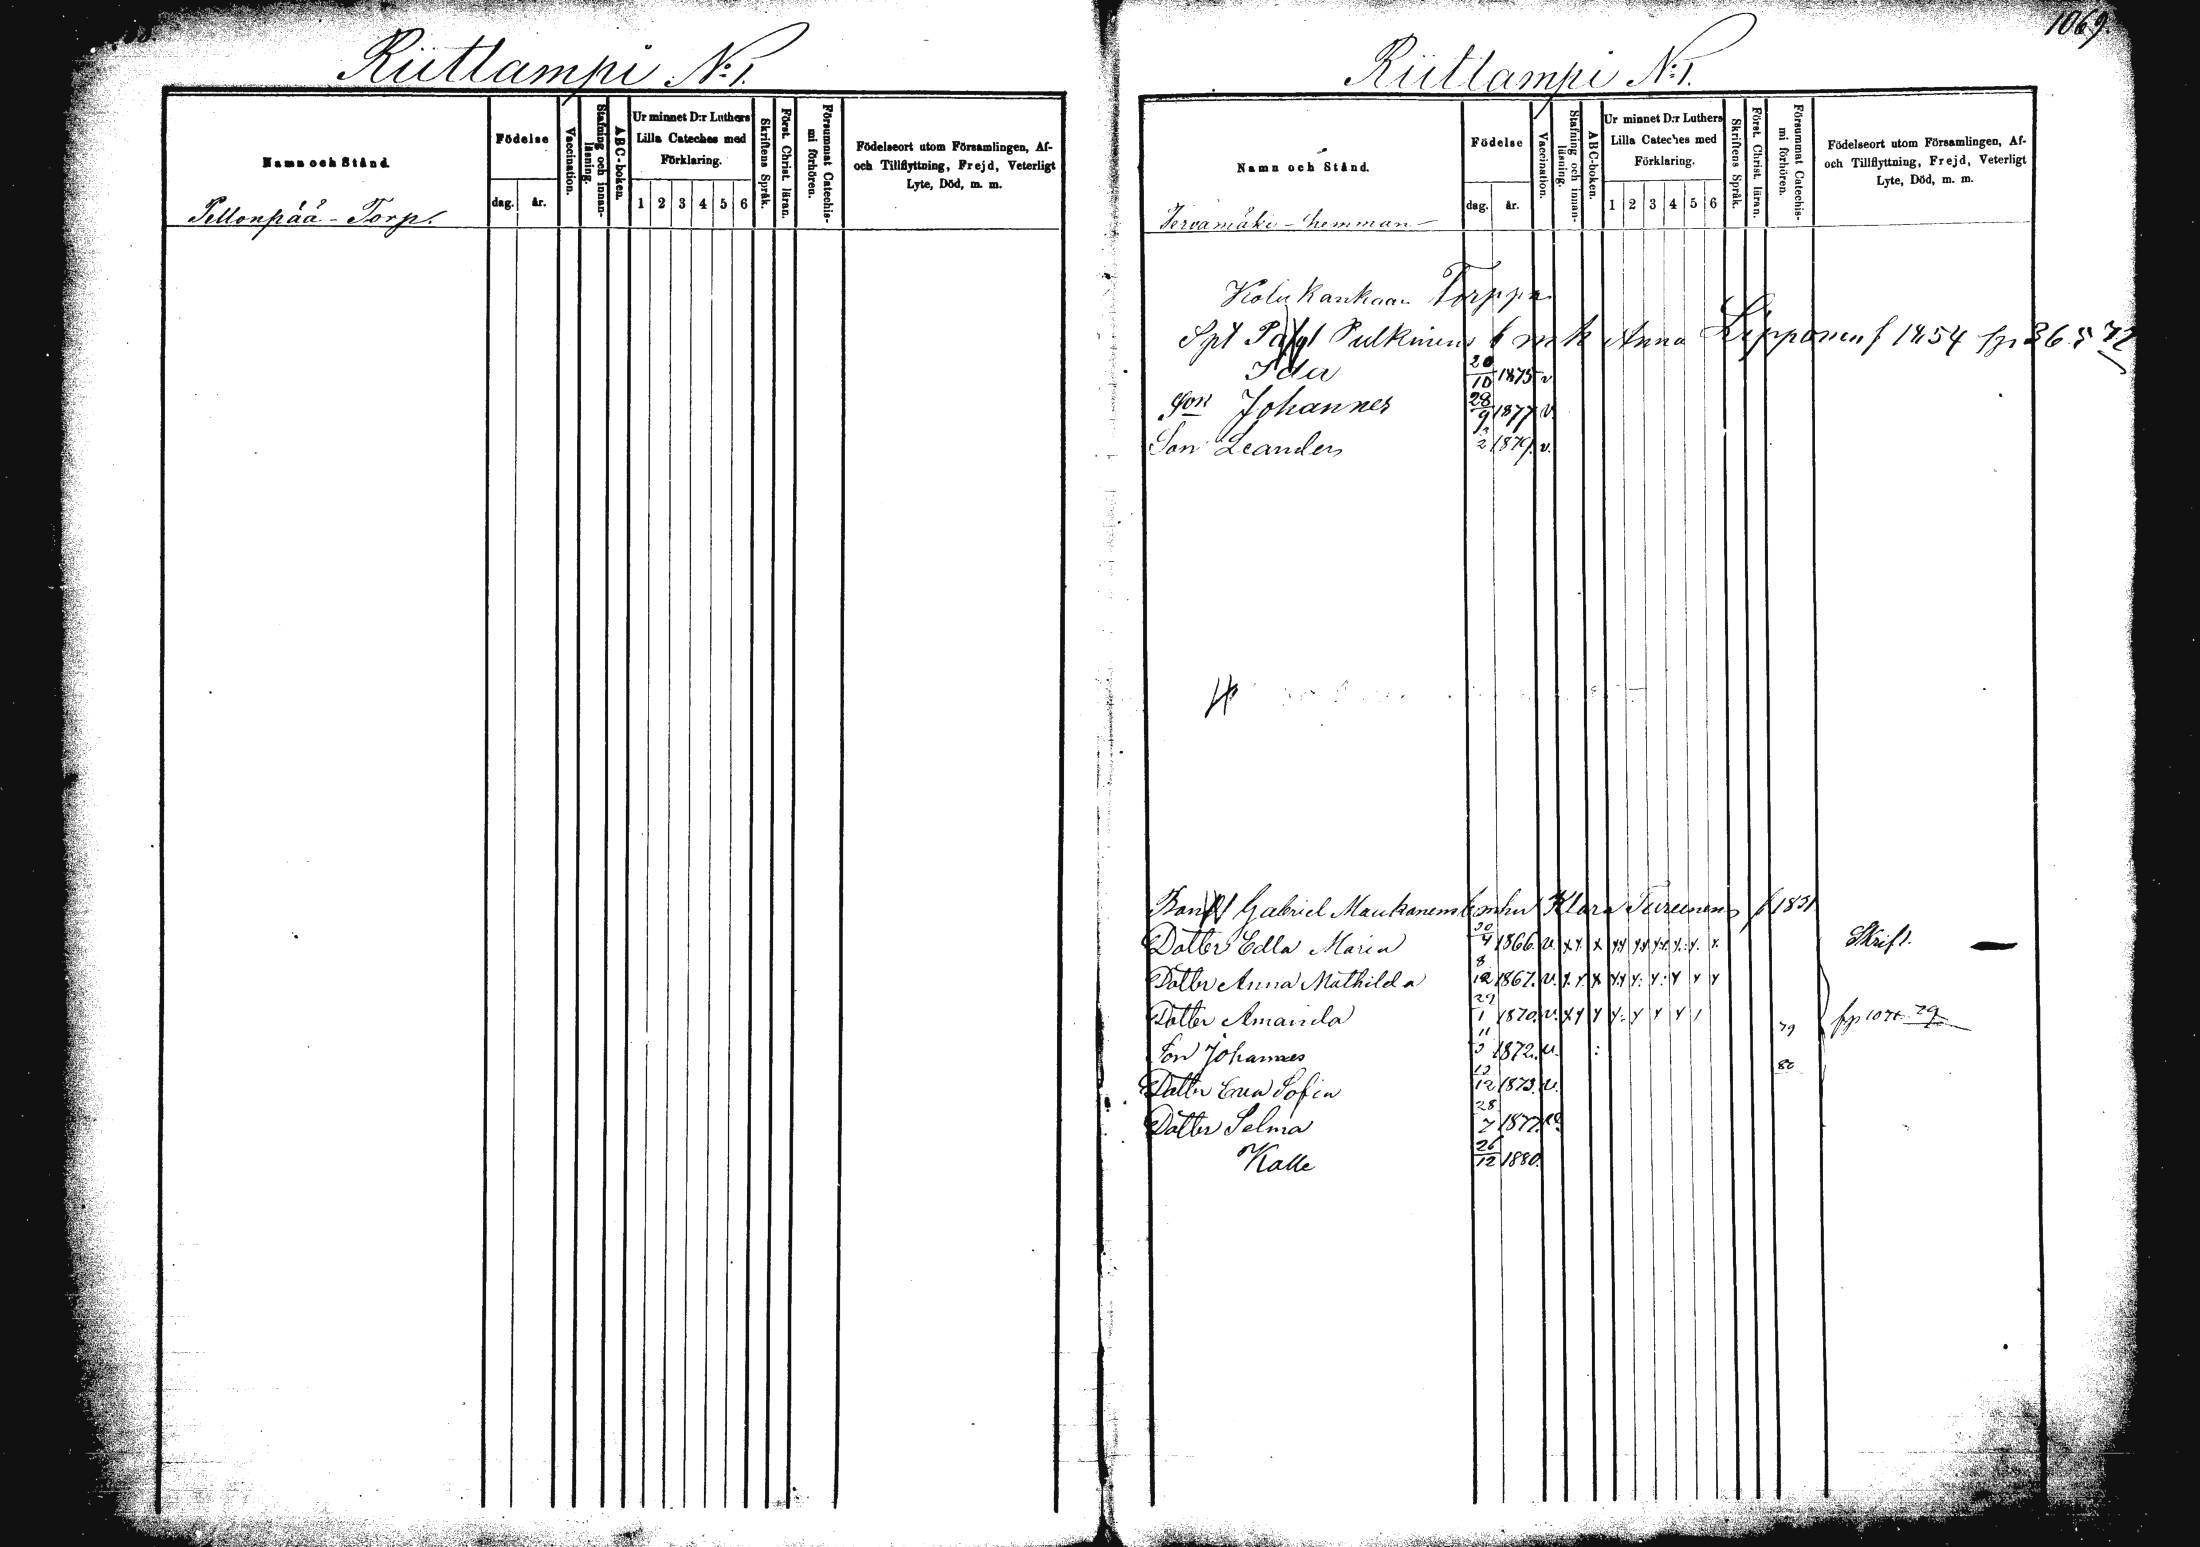 Riitlampi No 1.
Namn och Stånd.
Födelse
dag.
år.
Vaccination.
Stafning och innan-
läsning.
ABC-boken.
Ur minnet D:r Luthers
Lilla Cateches med
Förklaring.
1 2 3 4 5 6
Skriftens Språk.
Först. Christ. läran.
Försummat Catechis-
mi förhören.
Födelseort utom Församlingen, Af-
och Tillflyttning, Frejd, Veterligt
Lyte, Död, m. m.
Pellonpää - Torp.
1069.
Riitlampi No 1.
Namn och Stånd.
Födelse
dag.
år.
Vaccination.
Stafning och innan-
läsning.
ABC-boken.
Ur minnet D:r Luthers
Lilla Cateches med
Förklaring.
1 2 3 4 5 6
Skriftens Språk.
Först. Christ. läran.
Försummat Catechis-
mi förhören.
Födelseort utom Församlingen, Af-
och Tillflyttning, Frejd, Veterligt
Lyte, Död, m. m.
Tervamäki - hemman
Torppa
Pulkinens b m h Anna Lipponen f 1854
Ida 20/10 1875 v
Son Johannes 28/9 1877 v
Son Leander 2 1879. v.
Gabriel Maukonens b m hu Klara Tureinens f 1831
Dotter Edla Maria 30/4 1866. v. x x x Skrift.
Dotter Anna Mathilda 8/12 1867. v.
Dotter Amanda 29/1 1870. v. 79
Son Johannes 11/3 1872. v. : 80
Dotter Eva Sofia 12 1873. v.
Dotter Selma 28/7 1877.
Kalle 26/12 1880.